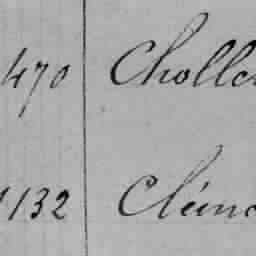 470 Choller
1132 Clém